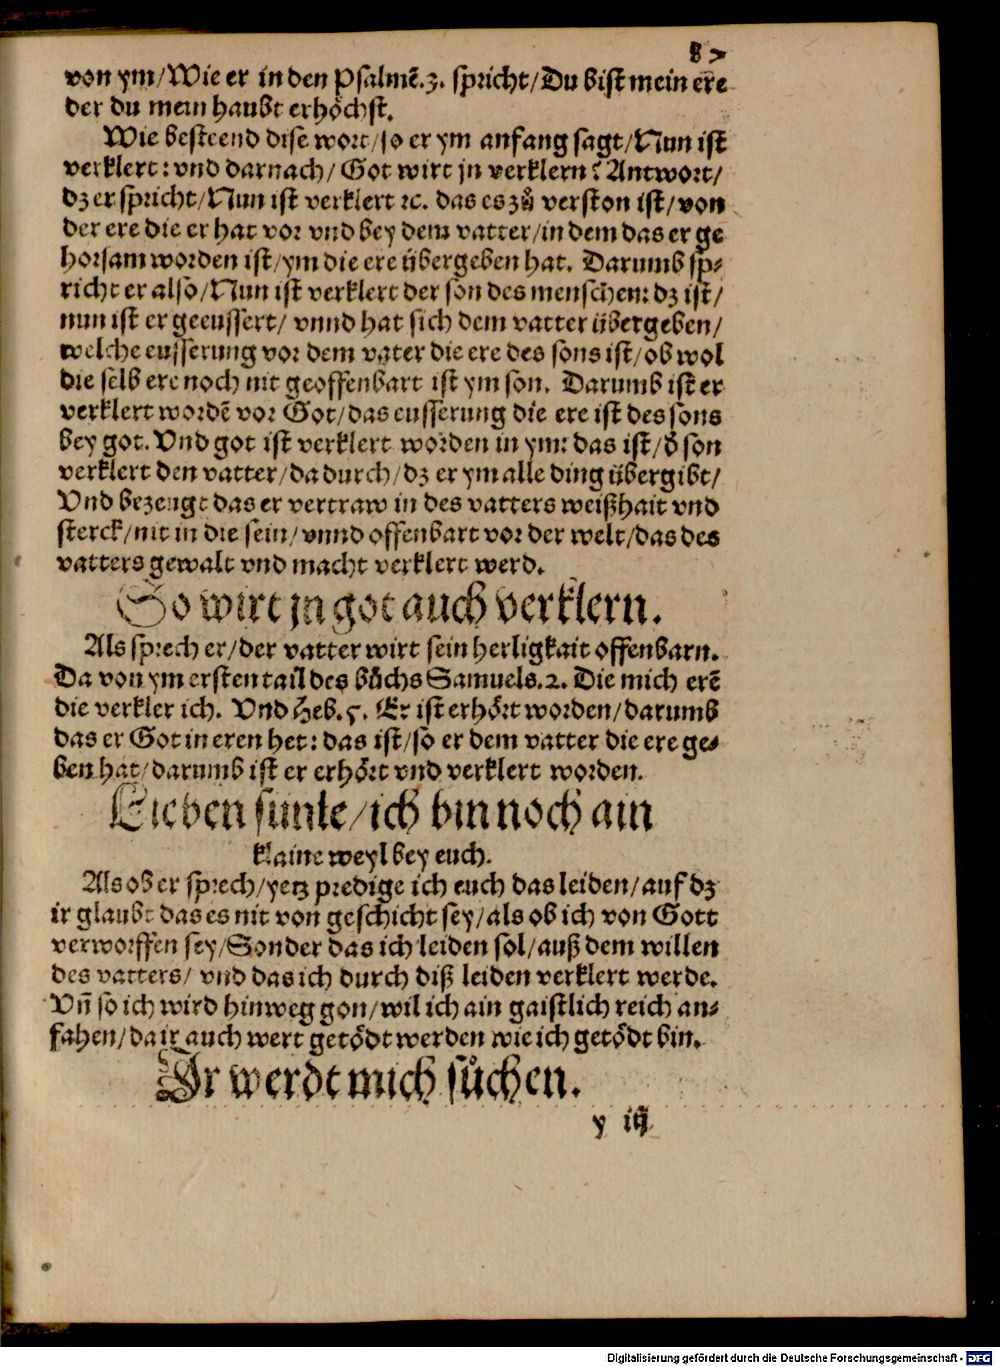 87
von ym/Wie er in den Psalmē.3. spricht/Du bist mein ere
der du mein haubt erhöchst.
Wie besteend dise wort/so er ym anfang sagt/Nun ist
verklert: vnd darnach/ Got wirt jn verklern? Antwort/
dz er spricht/Nun ist verklert ꝛc. das es zů verston ist/von
der ere die er hat vor vnd bey dem vatter/in dem das er ge
horsam worden ist/ym die ere übergeben hat. Darumb sp⸗
richt er also/Nun ist verklert der son des menschen: dz ist/
nun ist er geeussert/ vnnd hat sich dem vatter übergeben/
welche eusserung vor dem vater die ere des sons ist/ob wol
die selb ere noch nit geoffenbart ist ym son. Darumb ist er
verklert wordē vor Got/das eusserung die ere ist des sons
bey got. Vnd got ist verklert worden in ym: das ist/d̄ son
verklert den vatter/da durch/dz er ym alle ding übergibt/
Vnd bezeugt das er vertraw in des vatters weißhait vnd
sterck/nit in die sein/vnnd offenbart vor der welt/das des
vatters gewalt vnd macht verklert werd.
So wirt jn got auch verklern.
Als sprech er/der vatter wirt sein herligkait offenbarn.
Da von ym ersten tail des bůchs Samuels.2. Die mich erē
die verkler ich. Vnd Heb.5. Er ist erhört worden/darumb
das er Got in eren het: das ist/so er dem vatter die ere ge⸗
ben hat/darumb ist er erhört vnd verklert worden.
Lieben sünle/ich bin noch ain
klaine weyl bey euch.
Als ob er sprech/yetz predige ich euch das leiden/auf dz
ir glaubt das es nit von geschicht sey/als ob ich von Gott
verworffen sey/Sonder das ich leiden sol/auß dem willen
des vatters/ vnd das ich durch diß leiden verklert werde.
Vn̄ so ich wird hinweg gon/wil ich ain gaistlich reich an⸗
fahen/da ir auch wert getödt werden wie ich getödt bin.
Ir werdt mich sůchen.
y iij
Digitalisierung gefördert durch die Deutsche Forschungsgemeinschaft - DFG